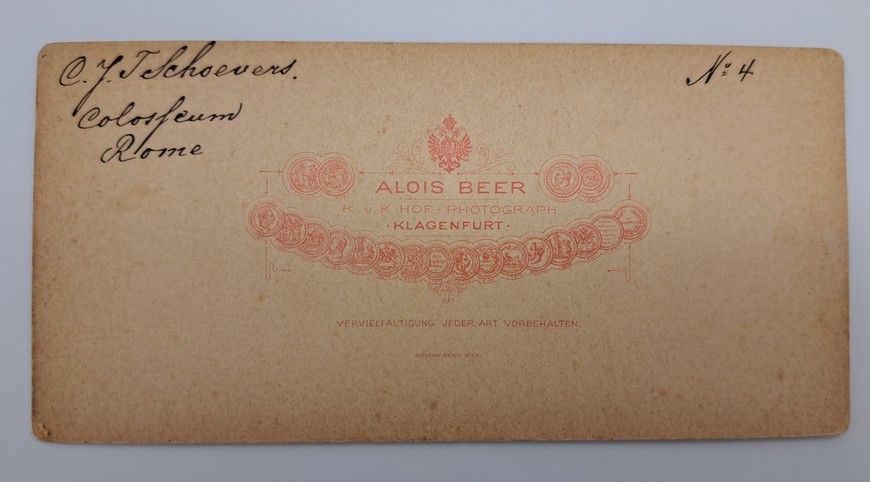 C. J. T Schoevers.
Colosseum
Rome
Nº 4
ALOIS BEER
K. u. K. HOF-PHOTOGRAPH
·KLAGENFURT·
VERVIELFÄLTIGUNG JEDER ART VORBEHALTEN.